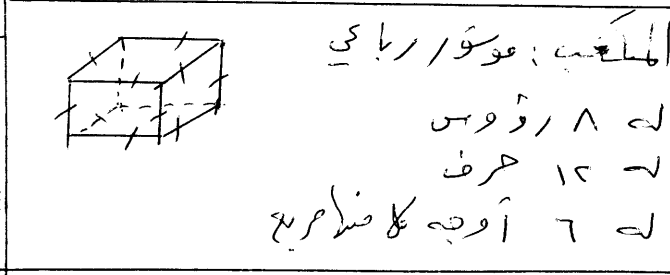 المكعب : موشور رباعي
له ٨ رؤوس
له ١٢ حرف
له ٦ أوجه كلا منها مربع